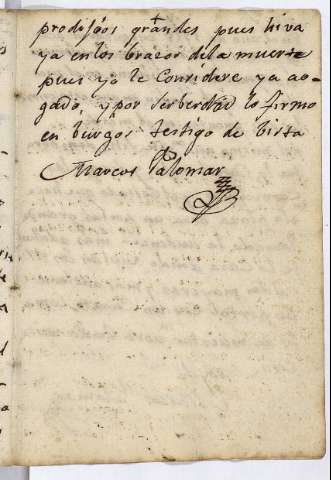 prodijios grandes pues hiva
ya en los brazos dela muerte
pues yo le Considere ya ao-
gado, y por ser berdad lo firmo
en burgos testigo de bista
Marcos Palomar